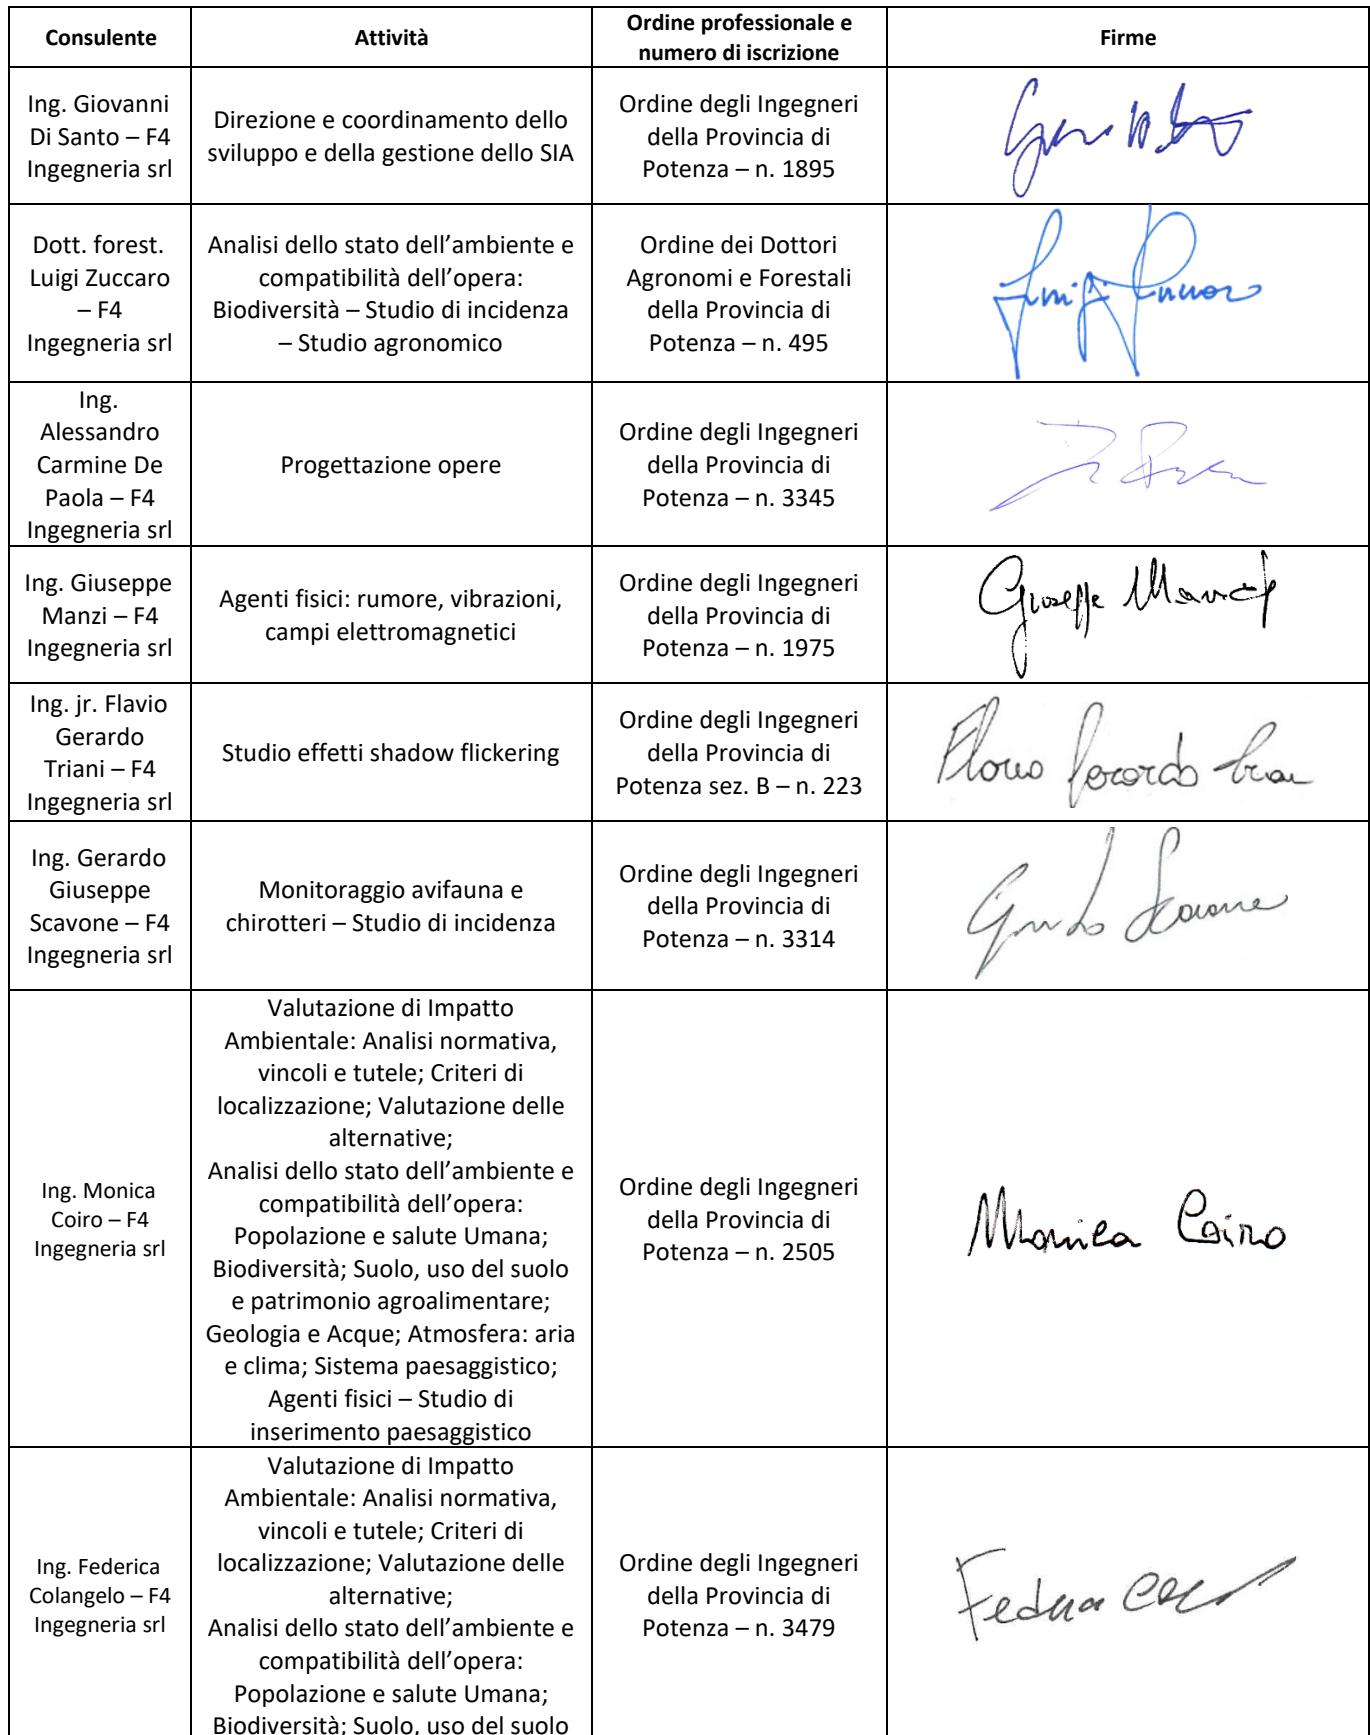 Consulente
Attività
Ordine professionale e
numero di iscrizione
Firme
Ing. Giovanni
Di Santo – F4
Ingegneria srl
Direzione e coordinamento dello
sviluppo e della gestione dello SIA
Ordine degli Ingegneri
della Provincia di
Potenza – n. 1895
Dott. forest.
Luigi Zuccaro
– F4
Ingegneria srl
Analisi dello stato dell’ambiente e
compatibilità dell’opera:
Biodiversità – Studio di incidenza
– Studio agronomico
Ordine dei Dottori
Agronomi e Forestali
della Provincia di
Potenza – n. 495
Ing.
Alessandro
Carmine De
Paola – F4
Ingegneria srl
Progettazione opere
Ordine degli Ingegneri
della Provincia di
Potenza – n. 3345
Ing. Giuseppe
Manzi – F4
Ingegneria srl
Agenti fisici: rumore, vibrazioni,
campi elettromagnetici
Ordine degli Ingegneri
della Provincia di
Potenza – n. 1975
Giuseppe Manzi
Ing. jr. Flavio
Gerardo
Triani – F4
Ingegneria srl
Studio effetti shadow flickering
Ordine degli Ingegneri
della Provincia di
Potenza sez. B – n. 223
Ing. Gerardo
Giuseppe
Scavone – F4
Ingegneria srl
Monitoraggio avifauna e
chirotteri – Studio di incidenza
Ordine degli Ingegneri
della Provincia di
Potenza – n. 3314
Ing. Monica
Coiro – F4
Ingegneria srl
Valutazione di Impatto
Ambientale: Analisi normativa,
vincoli e tutele; Criteri di
localizzazione; Valutazione delle
alternative;
Analisi dello stato dell’ambiente e
compatibilità dell’opera:
Popolazione e salute Umana;
Biodiversità; Suolo, uso del suolo
e patrimonio agroalimentare;
Geologia e Acque; Atmosfera: aria
e clima; Sistema paesaggistico;
Agenti fisici – Studio di
inserimento paesaggistico
Ordine degli Ingegneri
della Provincia di
Potenza – n. 2505
Monica Coiro
Ing. Federica
Colangelo – F4
Ingegneria srl
Valutazione di Impatto
Ambientale: Analisi normativa,
vincoli e tutele; Criteri di
localizzazione; Valutazione delle
alternative;
Analisi dello stato dell’ambiente e
compatibilità dell’opera:
Popolazione e salute Umana;
Biodiversità; Suolo, uso del suolo
Ordine degli Ingegneri
della Provincia di
Potenza – n. 3479